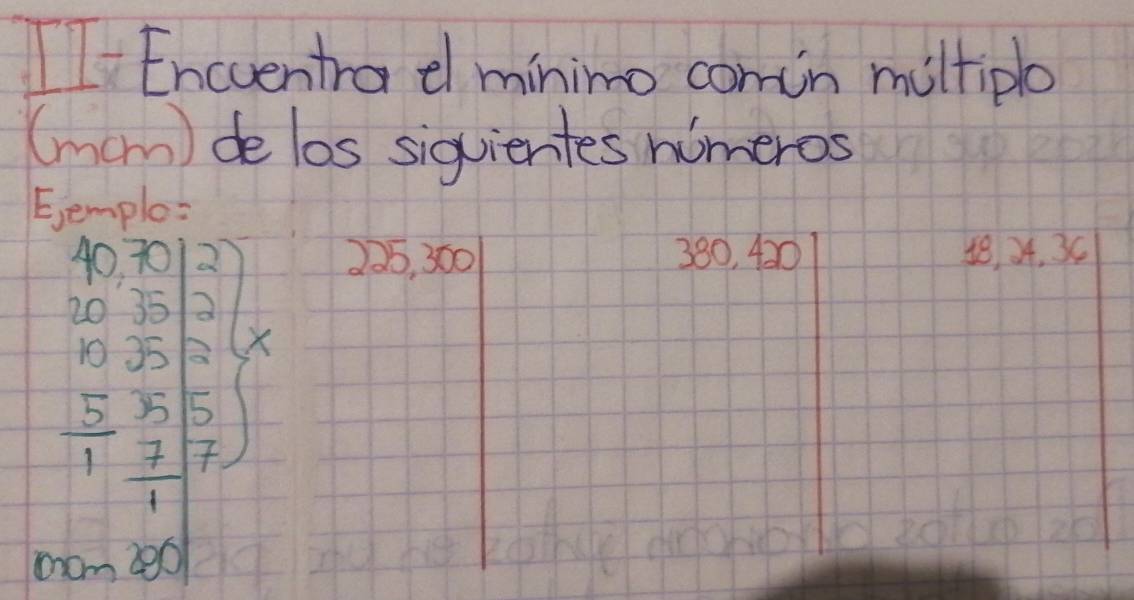 II- Encuentra el mínimo común múltiplo
(mcm) de los siguientes números
Ejemplo:
40, 70 | 2
20 35 | 2
10 35 | 2 x
5 35 | 5
1 7 | 7
1
mcm 280
225, 300
380, 420
18, 24, 36